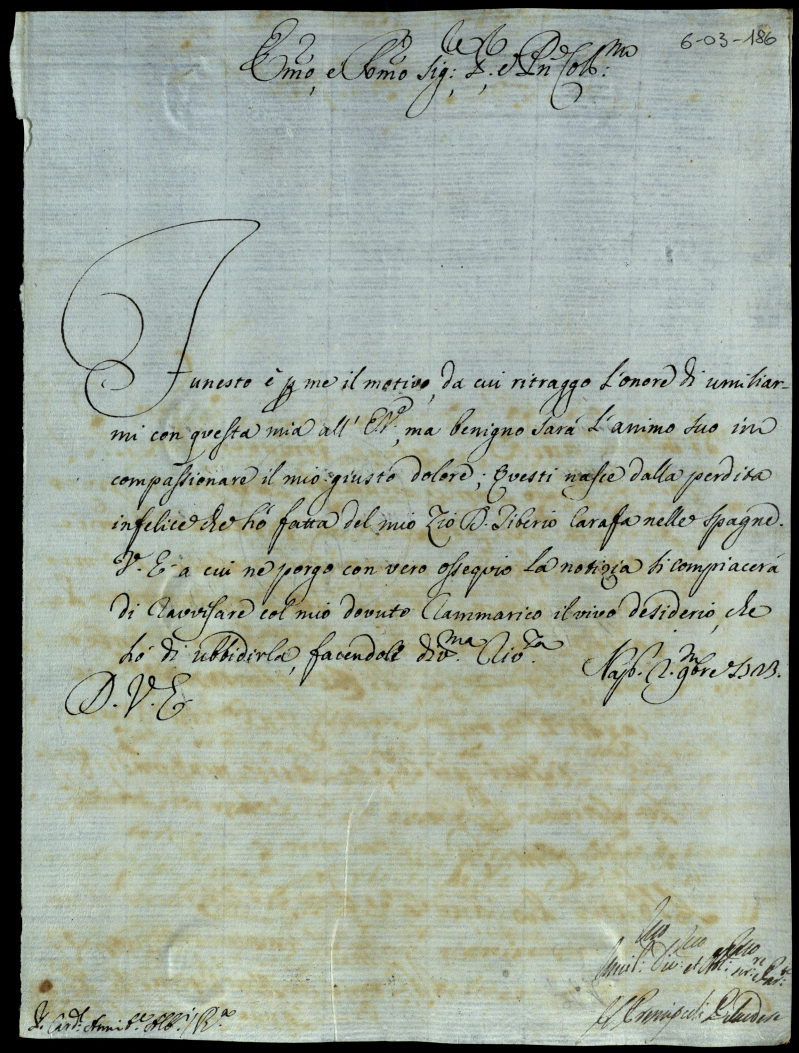 6-03-186
Em̃o, e Rm̃o Sig: S. e Pn̄e Col:mo
Funesto è p me il motivo, da cui ritraggo l'onore di umiliar-
mi con questa mia all' E.V., ma benigno sarà l'animo suo in
compassionare il mio giusto dolore; Questi nasce dalla perdita
infelice che hò fatta del mio Zio D. Tiberio Carafa nelle Spagne.
V. E. a cui ne porgo con vero ossequio la notizia si compiacerà
di ravvisare col mio dovuto rammarico il vivo desiderio, che
hò di ubbidirla, facendole div.ma riv.za
Nap. 2. 9bre
D. V. E.
S. Card. Annib.le Alb.i / R.a
Umil.
Il Principe di